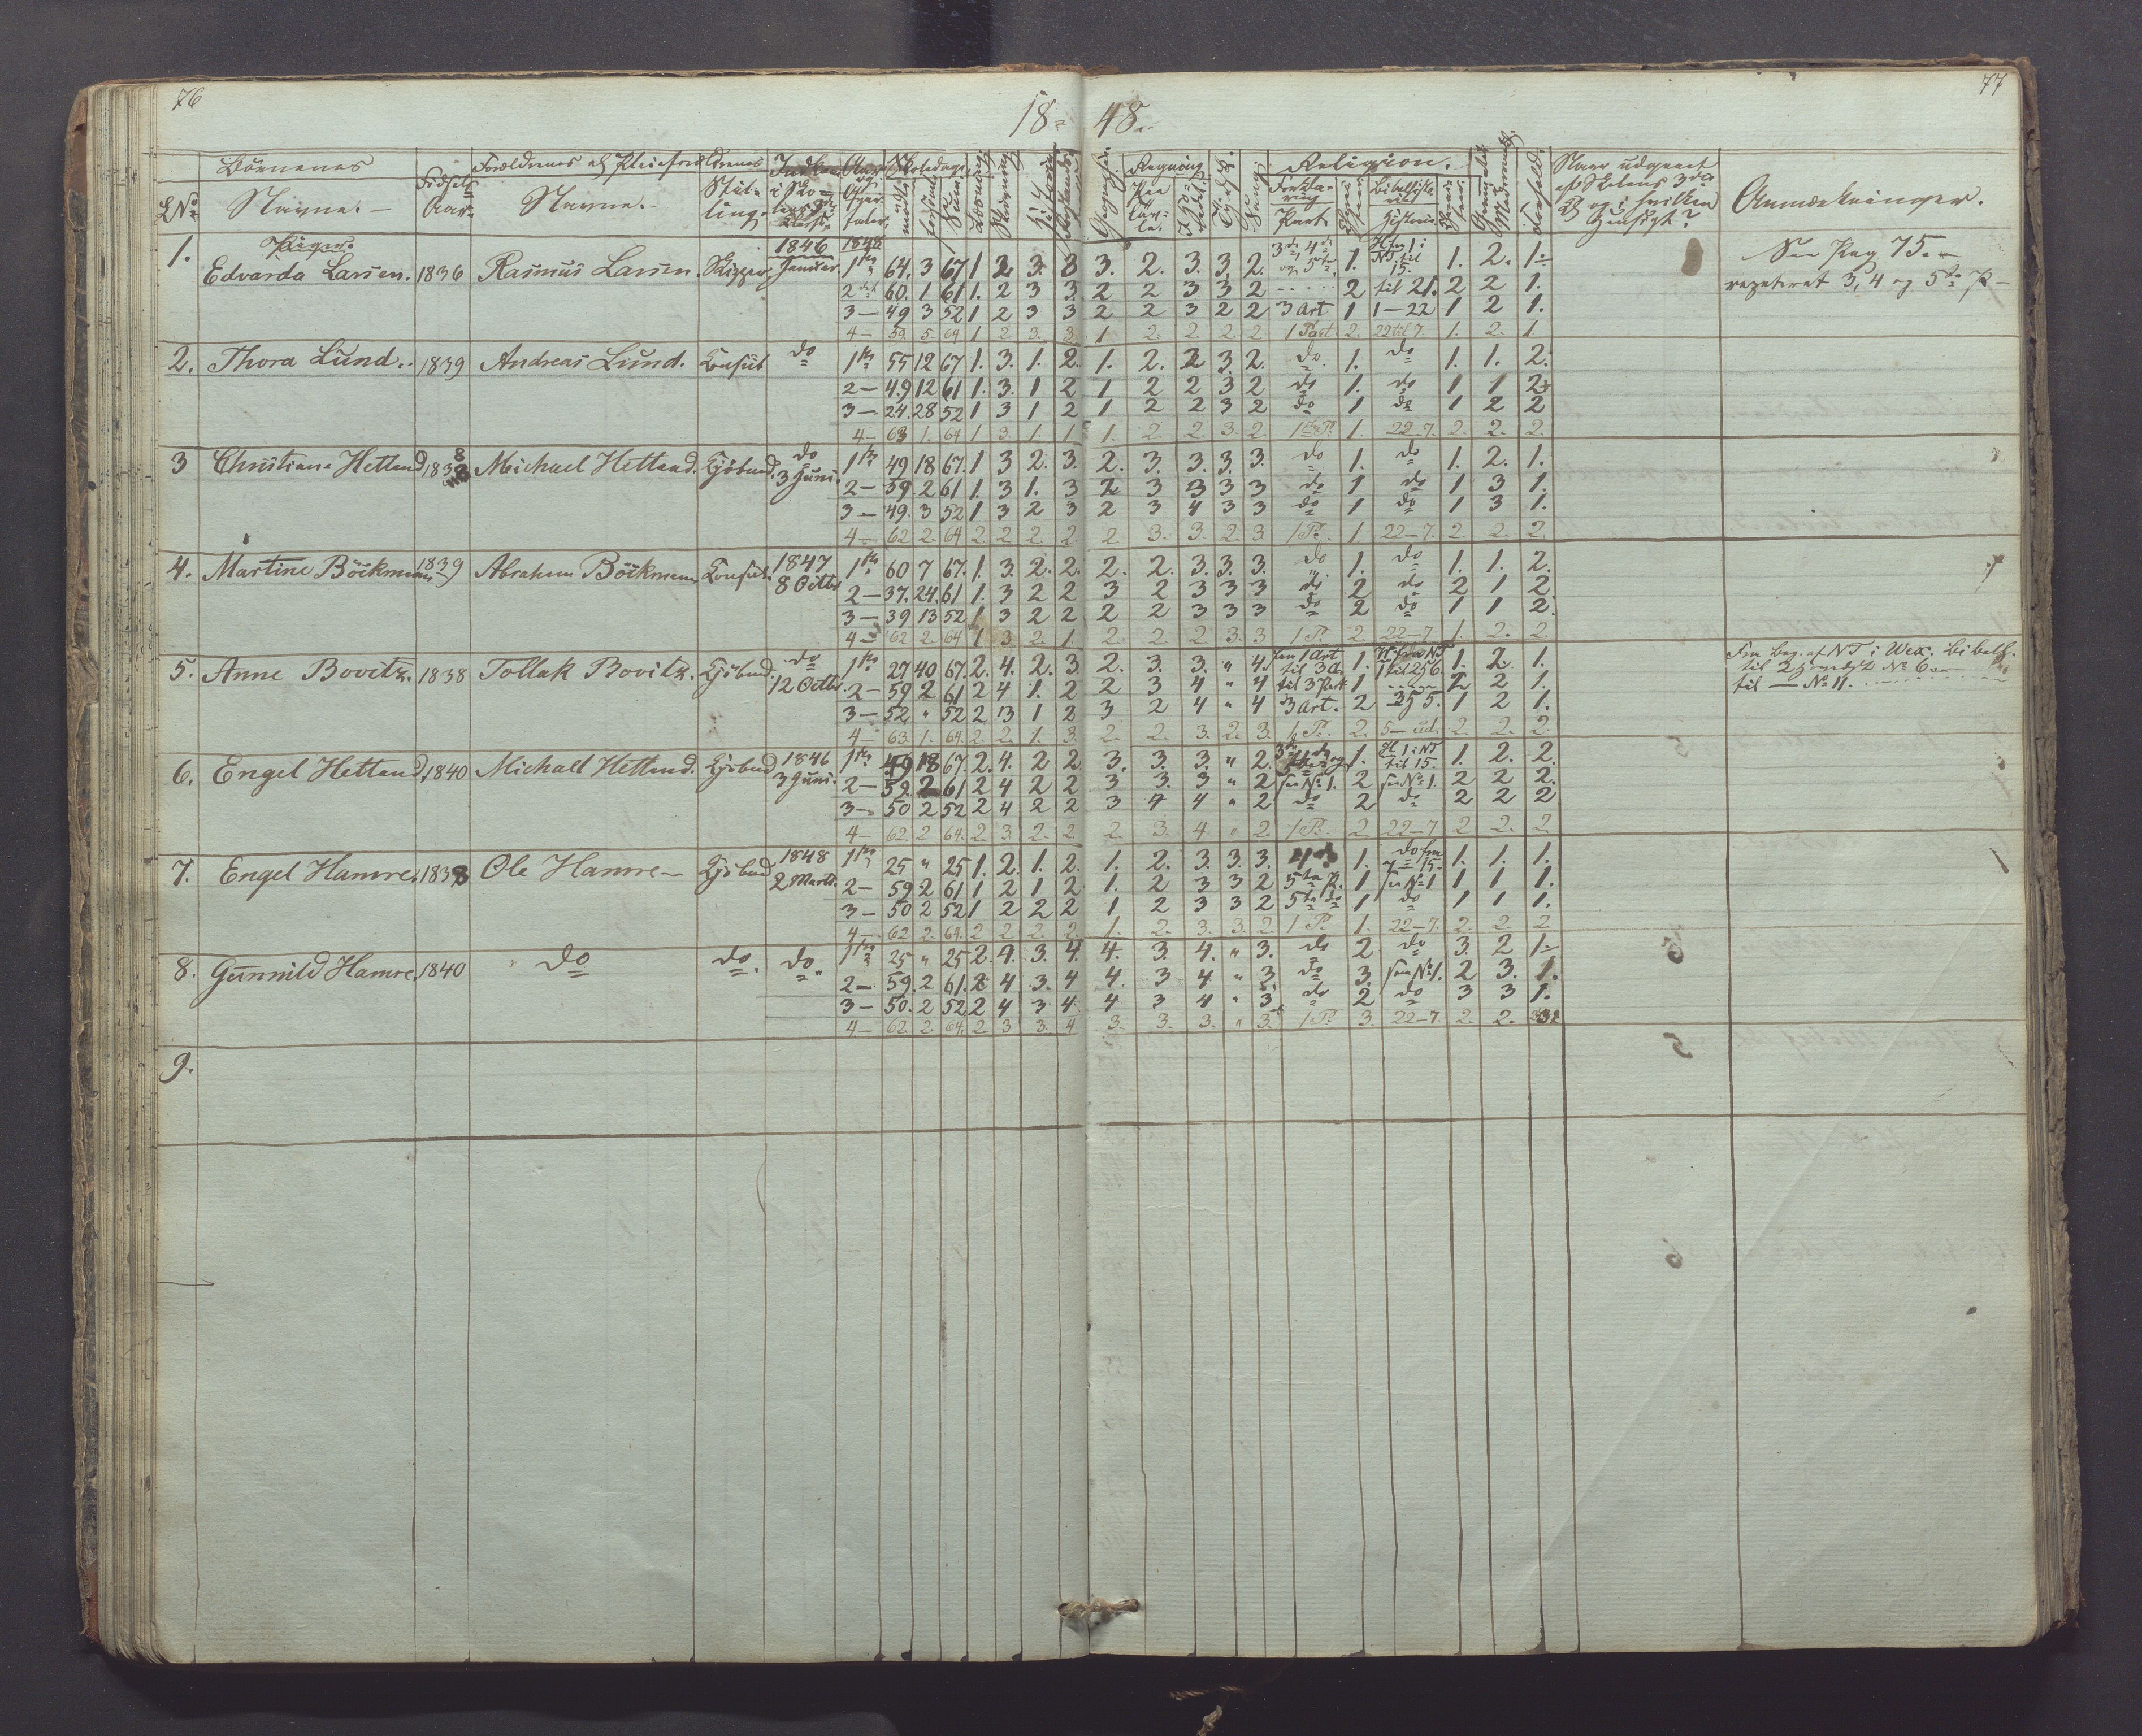 76
18 48.
77
Børnenes
Forældrenes el Pleieforældrenes
Skoledage
Regning
Religion.
LNo
Navne.
Fødsels Aar
Navne.
Stilling.
Læsning
Skrivning
Sang
Part
Historie
Anmærkninger.
Piger.
1. Edvarda Larsen. 1836 Rasmus Larsen. Skipper 1846 Januar 1848 1ste 64. 3 67 1 2. 3. 3 3. 2. 3. 3. 2. 3die, 4de og 5te 1. 1. 2. 1. See Pag 75.
2det 60. 1 61 1. 2 3 3. 2 2 3 3 2 2 til 21. 2 2 1. repeteret 3, 4 og 5te P
3 — 49 3 52 1 2 3 3 2 2 3 2 2 3 Art 1 1—22 1 2 1.
4 — 59. 5. 64 1 2. 3. 3. 1 2. 2. 2. 2. 1 Part 2. 22 til 7. 1. 2. 1.
2. Thora Lund. 1839 Andreas Lund. Consul do 1ste 55 12 67 1. 3. 1. 2. 1. 2. 2 3. 2. do. 1. do 1. 1. 2.
2 — 49 12 61 1. 3. 1 2 1 2 2 3 2 do 1. do 1 1 2
3 — 24. 28 52 1 3 1 2 1 2 2 3 2 do 1 do 1 2 2
4 — 63 1. 64 1 3. 1. 1. 1. 2. 2. 3. 2. 1ste P. 1. 22—7. 2. 2. 2.
3 Christiane Hetland 1838 Michael Hetland. Kjøbmd. do 3 Juni. 1ste 49 18 67. 1 3 2. 3. 2. 3. 3. 3. 3. do 1. do 1. 2. 1.
2 — 59. 2 61 1. 3 1. 3 2 3 3 3 3 do 1 do 1 3 1.
3 — 49. 3 52 1 3 2 3 2 3 4 3 3 do 1 do 1 3 1.
4 — 62 2. 64 2. 2. 2. 2. 2. 3. 3. 2. 3 1 P. 1 22—7. 2. 2. 2.
4. Martine Böckmann 1839 Abraham Böckmann Consul. 1847 8 Octbr 1ste 60 7 67. 1. 3. 2. 2. 2. 2. 3. 3. 3. do 1. do 1. 1. 2.
2 — 37. 24. 61 1. 3 2 2 3 2 3 3 3 do 2 do 2 1 2
3 — 39 13 52 1 3 2 2 2 2 3 3 3 do 2 do 1 1 2.
4 — 62 2. 64 1 3. 2. 1. 2. 2. 2. 3. 3 1 P. 2. 22—7 1. 2. 2.
5. Anne Bovitz. 1838 Tollak Bovitz. Kjöbmd. do 12 Octbr. 1ste 27 40 67. 2. 4. 2. 3. 2. 3. 3. " 4. fra 1 Art til 3 A. 1. 1. 2. 1. Fra Beg. af NT i Wex. Bibelh. til No 6
2 — 59 2 61 2 4 1. 2 2 3 4 " 4 til 3 Part 1 2 2 1. til — No 11.
3 — 52 " 52 2 3 1 2 3 2 4 " 4 3 Art. 2 1 2 1.
4 — 63. 1. 64. 2. 2. 1. 3. 2. 2. 3. 2. 3. 1 P. 2. 5— ud. 2. 2. 2.
6. Engel Hetland 1840 Michael Hetland. Kjöbmd 1846 3 Juni. 1ste 49 18 67. 2. 4. 2 2 3. 3. 3. " 2. 1. H 1 i NT til 15. 1. 2. 2.
2 — 59. 2 61 2 4 2 2 3 3. 3 " 2 see No 1. 2 see No 1. 2 2 2.
3 — 50 2 52 2 4 2 2 3 4 4 " 2 do 2 do 2 2 2
4 — 62. 2 64. 2. 3. 2. 2 2. 3. 4. " 2 1 P. 2 22—7 2 2. 2.
7. Engel Hamre. 1838 Ole Hamre Kjöbmd 1848 2 Marts. 1ste 25 " 25 1. 2. 1. 2. 1. 2. 3. 3. 3. 4 1. do fra 7 = 15. 1. 1. 1.
2 — 59 2 61 1 2 1 2 1. 2 3 3 2 5te P. 1 see No 1 1 1 1.
3 — 50 2 52 1 2 2 2 1 2 3 3 2 5te do 1 do 1 1 1.
4 — 62 2. 64. 2 2. 2. 2. 1. 2. 3. 3. 2. 1 P. 1. 22—7. 2. 2. 2
8. Gunnild Hamre. 1840 do do. do. 1ste 25 " 25 2. 4. 3. 4. 4. 3. 4. " 3. do 2 do 3. 2 1.
2 — 59. 2 61. 2 4 3. 4 4. 3 4. " 3 do 3. see No 1. 2 3. 1.
3 — 50. 2 52 2 4 3 4. 4 3 4 " 3 do 2 do 3 3 1.
4 — 62. 2. 64. 2. 3 3. 4 3. 3. 3. " 3. 1 P. 3. 22—7. 2. 2.
9.